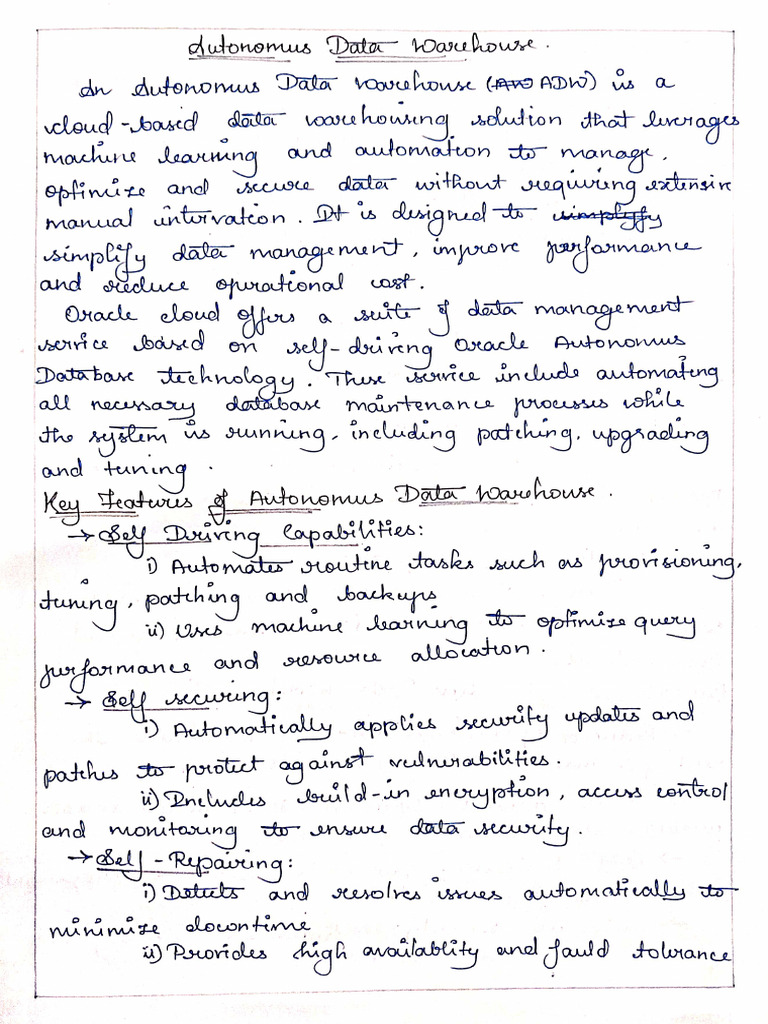 Autonomus Data Warehouse.
An Autonomus Data Warehouse (AW ADW) is a
cloud-based data warehousing solution that leverages
machine learning and automation to manage,
optimize and secure data without requiring extensive
manual intervation. It is designed to simplyfy
simplify data management, improve performance
and reduce operational cost.
Oracle cloud offers a suite of data management
service based on self-driving Oracle Autonomus
Database technology. These service include automating
all necessary database maintenance processes while
the system is running, including patching, upgrading
and tuning.
Key Features of Autonomus Data Warehouse.
→ Self Driving Capabilities:
i) Automates routine tasks such as provisioning,
tuning, patching and backups
ii) Uses machine learning to optimize query
performance and resource allocation.
→ Self securing:
i) Automatically applies security updates and
patches to protect against vulnerabilities.
ii) Includes build-in encryption, access control
and monitoring to ensure data security.
→ Self-Repairing:
i) Detects and resolves issues automatically to
minimize downtime
ii) Provides high availablity and fauld tolerance